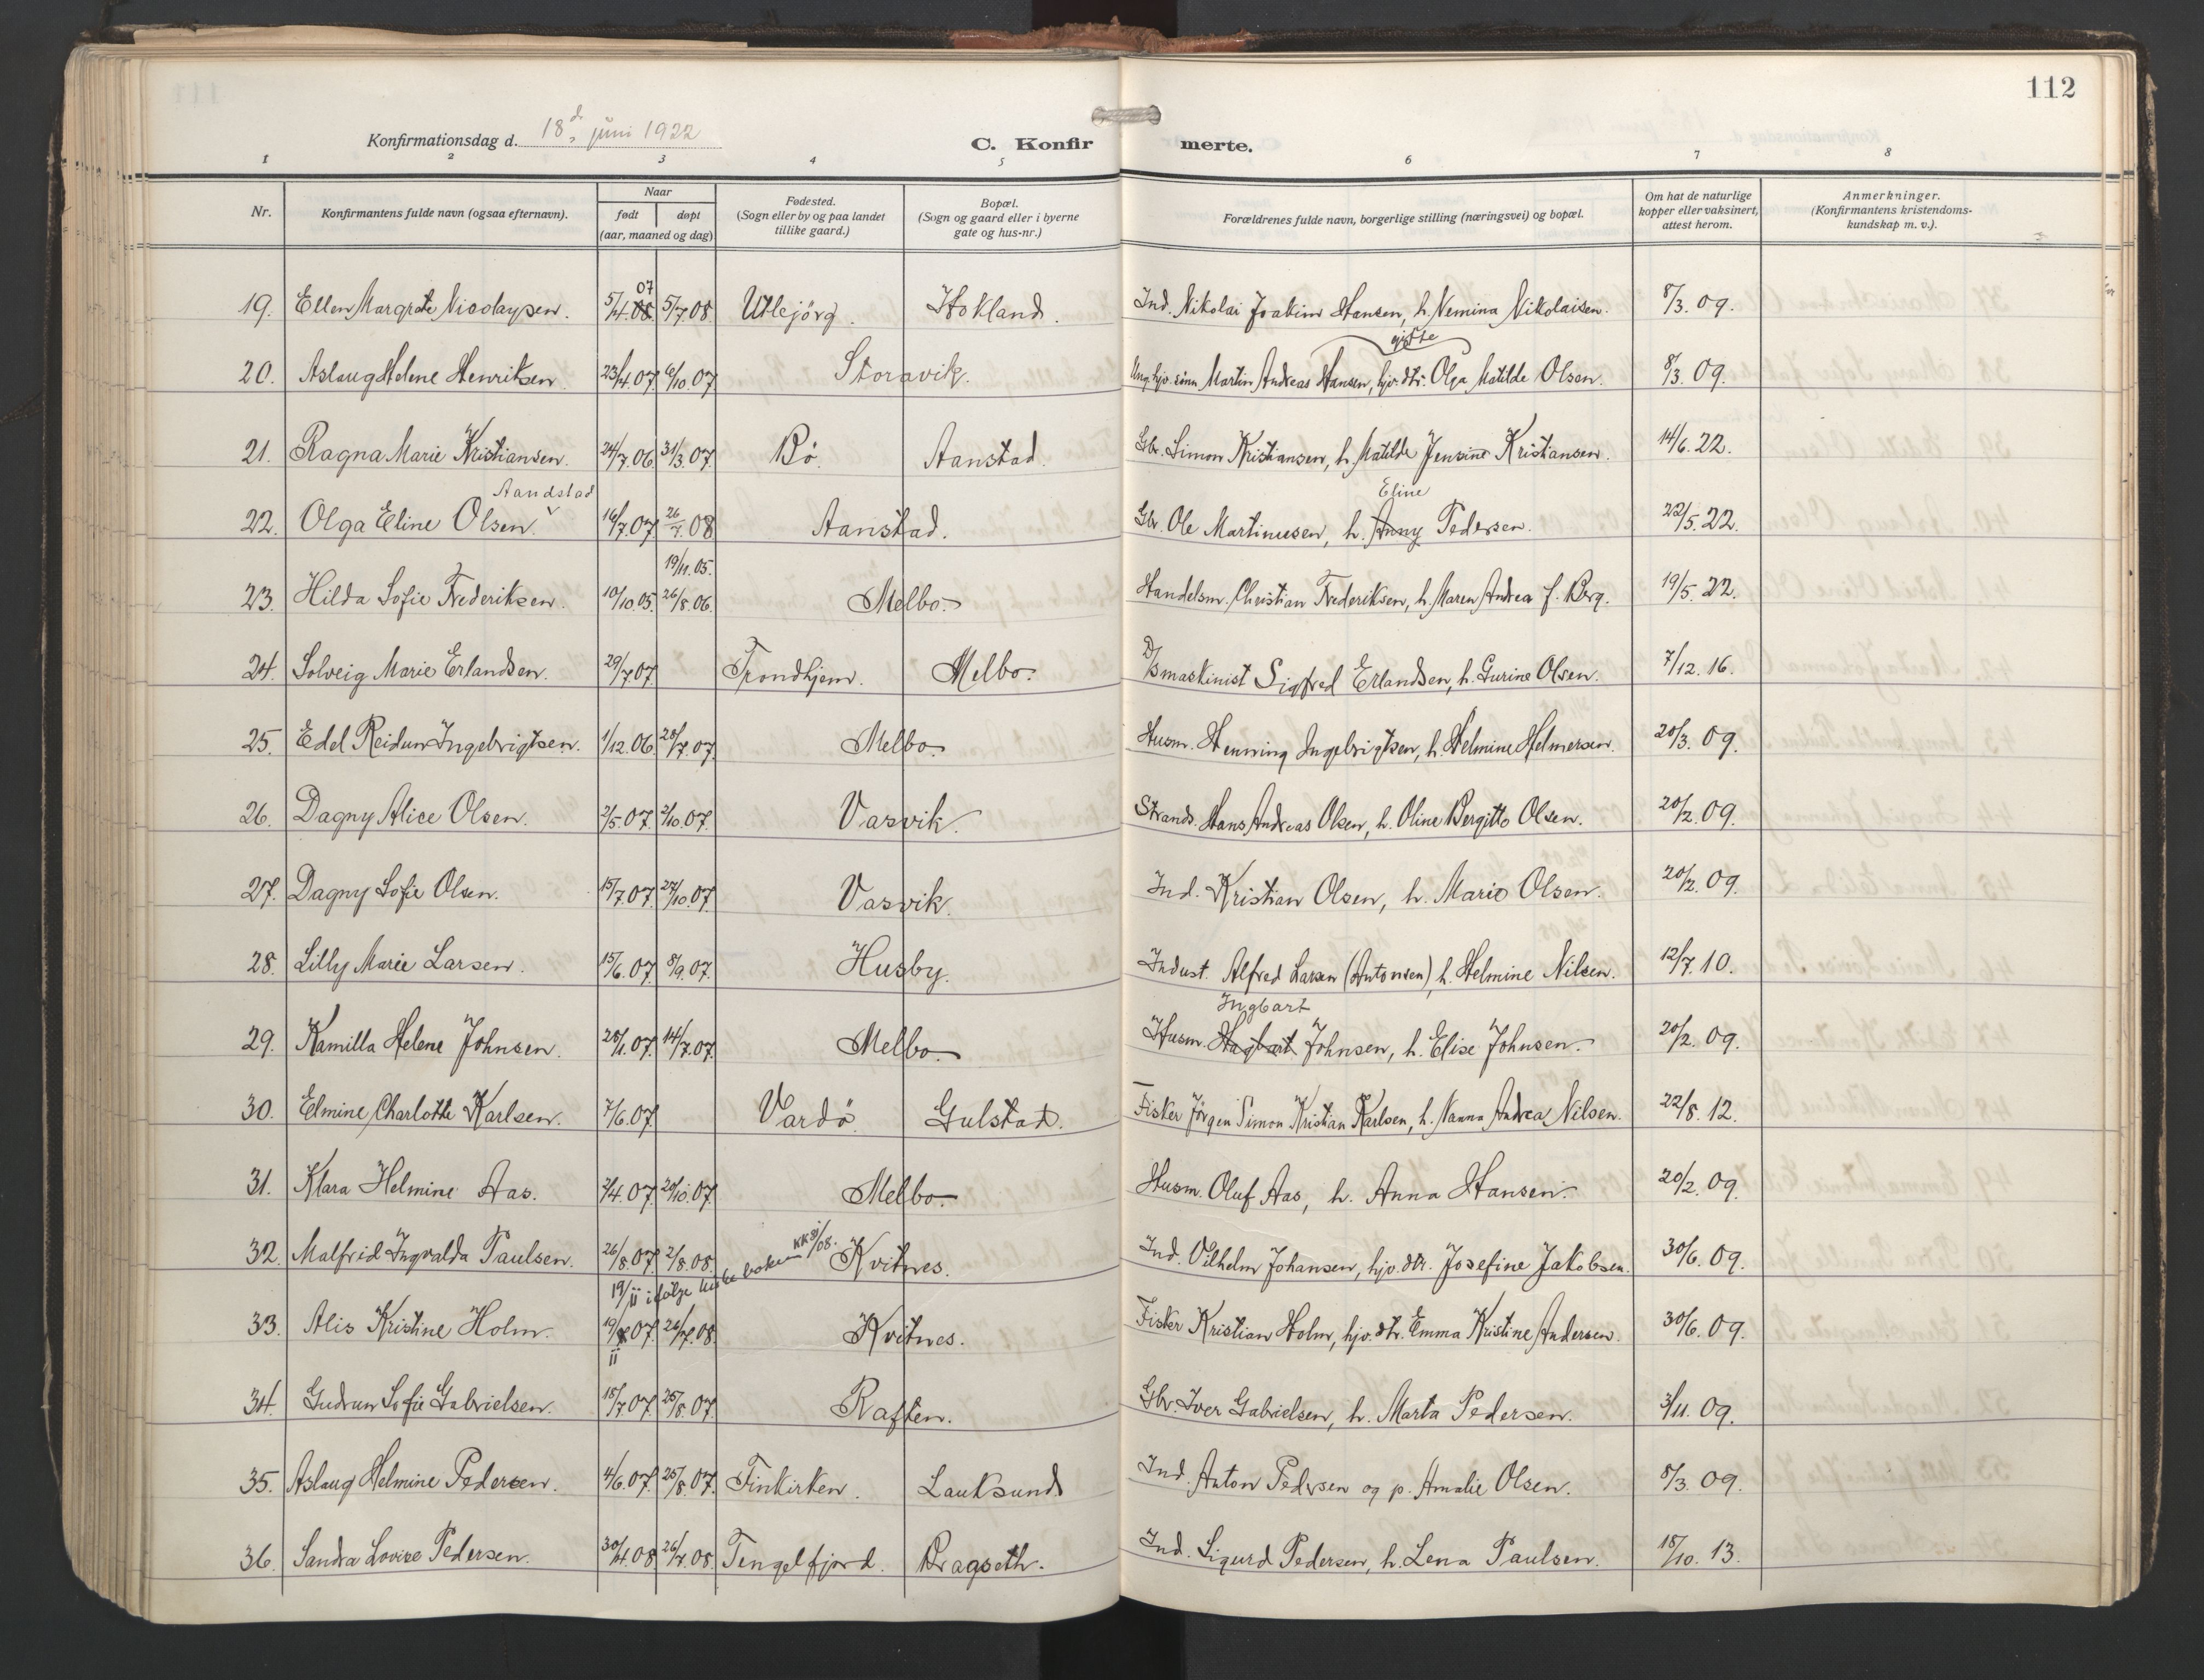 112
Konfirmationsdag d. 18de juni 1922
C. Konfirmerte.
1 2 3 4 5 6 7 8
Nr.
Konfirmantens fulde navn (ogsaa efternavn).
Naar
født døpt
(aar, maaned og dag)
Fødested.
(Sogn eller by og paa landet
tillike gaard.)
Bopæl.
(Sogn og gaard eller i byerne
gate og hus-nr.)
Forældrenes fulde navn, borgerlige stilling (næringsvei) og bopæl.
Om hat de naturlige
kopper eller vaksinert,
attest herom.
Anmerkninger.
(Konfirmantens kristendoms-
kundskap m. v.).
07
19. Ellen Margrete Nicolaysen. 5/4.08 5/7.08 Utbjörg. Hokland. Ind. Nikolai Joakim Hansen, h. Nemina Nikolaisen. 8/3. 09.
gifte
20. Aslaug Helene Henriksen. 23/4.07. 6/10.07 Storavik. Ung. hjv. sönn Martin Andreas Hansen, hjv. dtr. Olga Matilde Olsen. 8/3. 09.
21. Ragna Marie Kristiansen. 24/7.06. 31/3.07. Bö. Aanstad. Gbr. Simon Kristiansen, h. Matilde Jensine Kristiansen. 14/6. 22.
Aandstad
Eline
22. Olga Eline Olsen. 16/7.07. 26/7.08 Aanstad. Gbr. Ole Martinusen, h. Anny Pedersen. 22/5. 22.
19/11.05.
23. Hilda Sofie Frederiksen. 10/10.05. 26/8.06. Melbo. Handelsm. Christian Frederiksen, h. Maren Andrea f. Berg. 19/5. 22.
24. Solveig Marie Erlandsen. 29/7.07. Trondhjem. Melbo. D/smaskinist Sigfred Erlandsen, h. Gurine Olsen. 7/12. 16.
25. Edel Reidun Ingebrigtsen. 1/12.06. 28/7.07. Melbo. Husm. Henning Ingebrigtsen, h. Helmine Helmersen. 20/3. 09.
26. Dagny Alice Olsen. 2/5.07. 2/10.07. Vasvik. Strands. Hans Andreas Olsen, h. Oline Bergitte Olsen. 20/2. 09.
27. Dagny Sofie Olsen. 15/7.07. 27/10.07. Vasvik. Ind. Kristian Olsen, h. Marie Olsen. 20/2. 09.
28. Lilly Marie Larsen. 15/6.07. 8/9.07. Husby. Indust. Alfred Larsen (Antonsen), h. Helmine Nilsen. 12/7. 10.
Ingbart
29. Kamilla Helene Johnsen. 28/1.07. 14/7.07. Melbo. Husm. Hagbart Johnsen, h. Elise Johnsen. 20/2. 09.
30. Elmine Charlotte Karlsen. 7/6.07. Vardö. Gulstad. Fisker Jörgen Simon Kristian Karlsen, h. Nanna Andrea Nilsen. 22/8. 12.
31. Klara Helmine Aas. 2/4.07. 20/10.07. Melbo. Husm. Oluf Aas, h. Anna Hansen. 20/2. 09.
32. Malfrid Ingvalda Paulsen. 26/8.07. 2/8.08. Kvitnes. Ind. Vilhelm Johansen, hjv. dtr. Josefine Jakobsen. 30/6. 09.
19/11 ifölge kirkeboken
33. Alis Kristine Holm. 19/7.07. 26/7.08. Kvitnes. Fisker Kristian Holm, hjv. dtr. Emma Kristine Andersen. 30/6. 09.
11
34. Gudrun Sofie Gabrielsen. 18/7.07. 25/8.07. Raften. Gbr. Iver Gabrielsen, h. Marta Pedersen. 3/11. 09.
35. Aslaug Helmine Pedersen. 4/6.07. 25/8.07. Finkirken. Lauksund Ind. Anton Pedersen og p. Amalie Olsen. 8/3. 09.
36. Sandra Lovise Pedersen. 30/4.08 26/7.08. Tengelfjord. Dragseth. Ind. Sigurd Pedersen, h. Lena Paulsen. 18/10. 13.